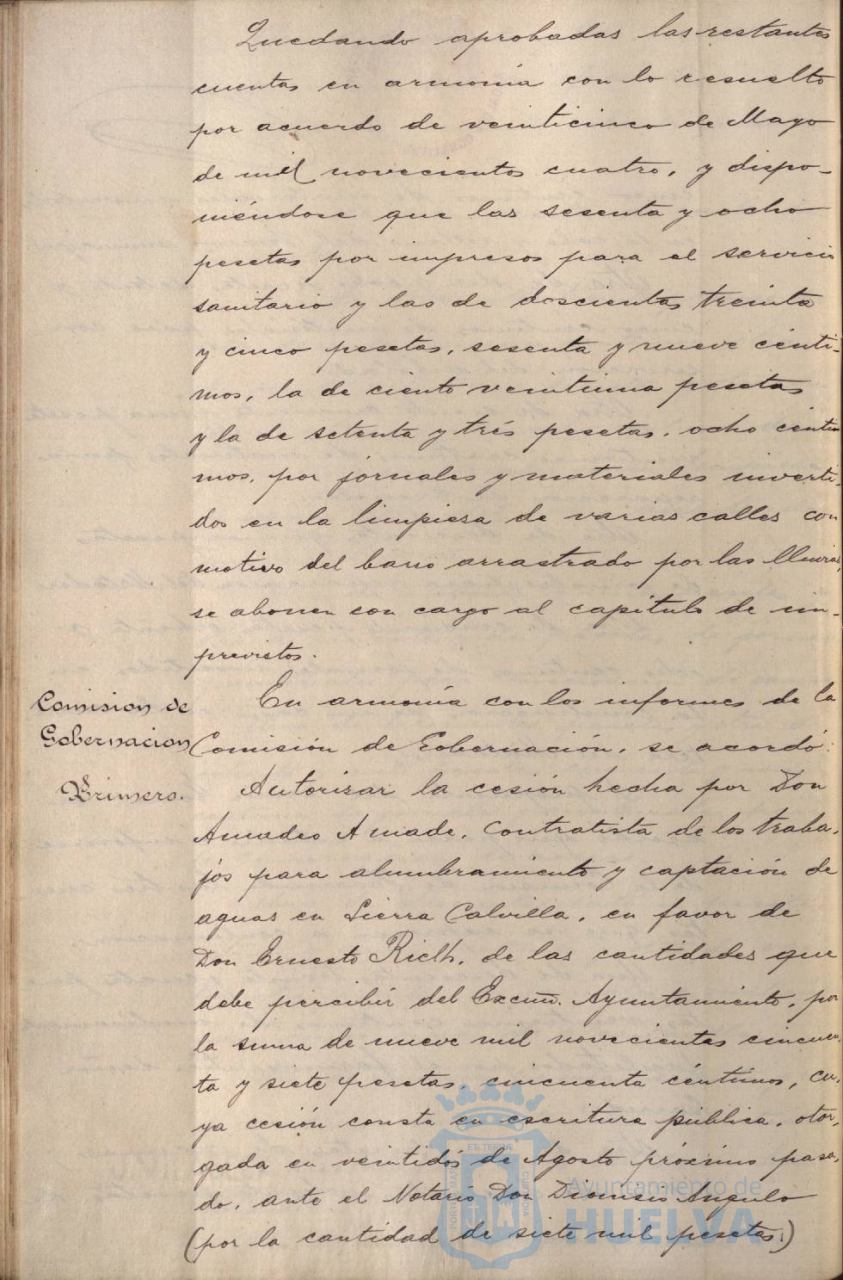 Quedando aprobadas las restantes
cuentas en armonía con lo resuelto
por acuerdo de veinticinco de Mayo
de mil novecientos cuatro, y dispo-
niéndose que las sesenta y ocho
pesetas por impresos para el servicio
sanitario y las de doscientas treinta
y cinco pesetas, sesenta y nueve cénti-
mos, la de ciento veintiuna pesetas
y la de setenta y trés pesetas, ocho cénti
mos, por jornales y materiales inverti-
dos en la limpiesa de varias calles con
motivo del barro arrastrado por las lluvias,
se abonen con cargo al capítulo de im-
previstos.
Comision de
Gobernacion
En armonía con los informes de la
Comisión de Gobernación, se acordó:
Primero.
Autorizar la cesión hecha por Don
Amadeo Amade, Contratista de los traba-
jos para alumbramiento y captación de
aguas en Sierra Calvilla, en favor de
Don Ernesto Rieth, de las cantidades que
debe percibir del Excmo. Ayuntamiento, por
la suma de nueve mil novecientas cincuen-
ta y siete pesetas, cincuenta céntimos, cu-
ya cesión consta en escritura pública, otor-
gada en veintidós de Agosto próximo pasa-
do, ante el Notario Don Dionisio Angulo
(por la cantidad de siete mil pesetas.)
Ayuntamiento de
HUELVA